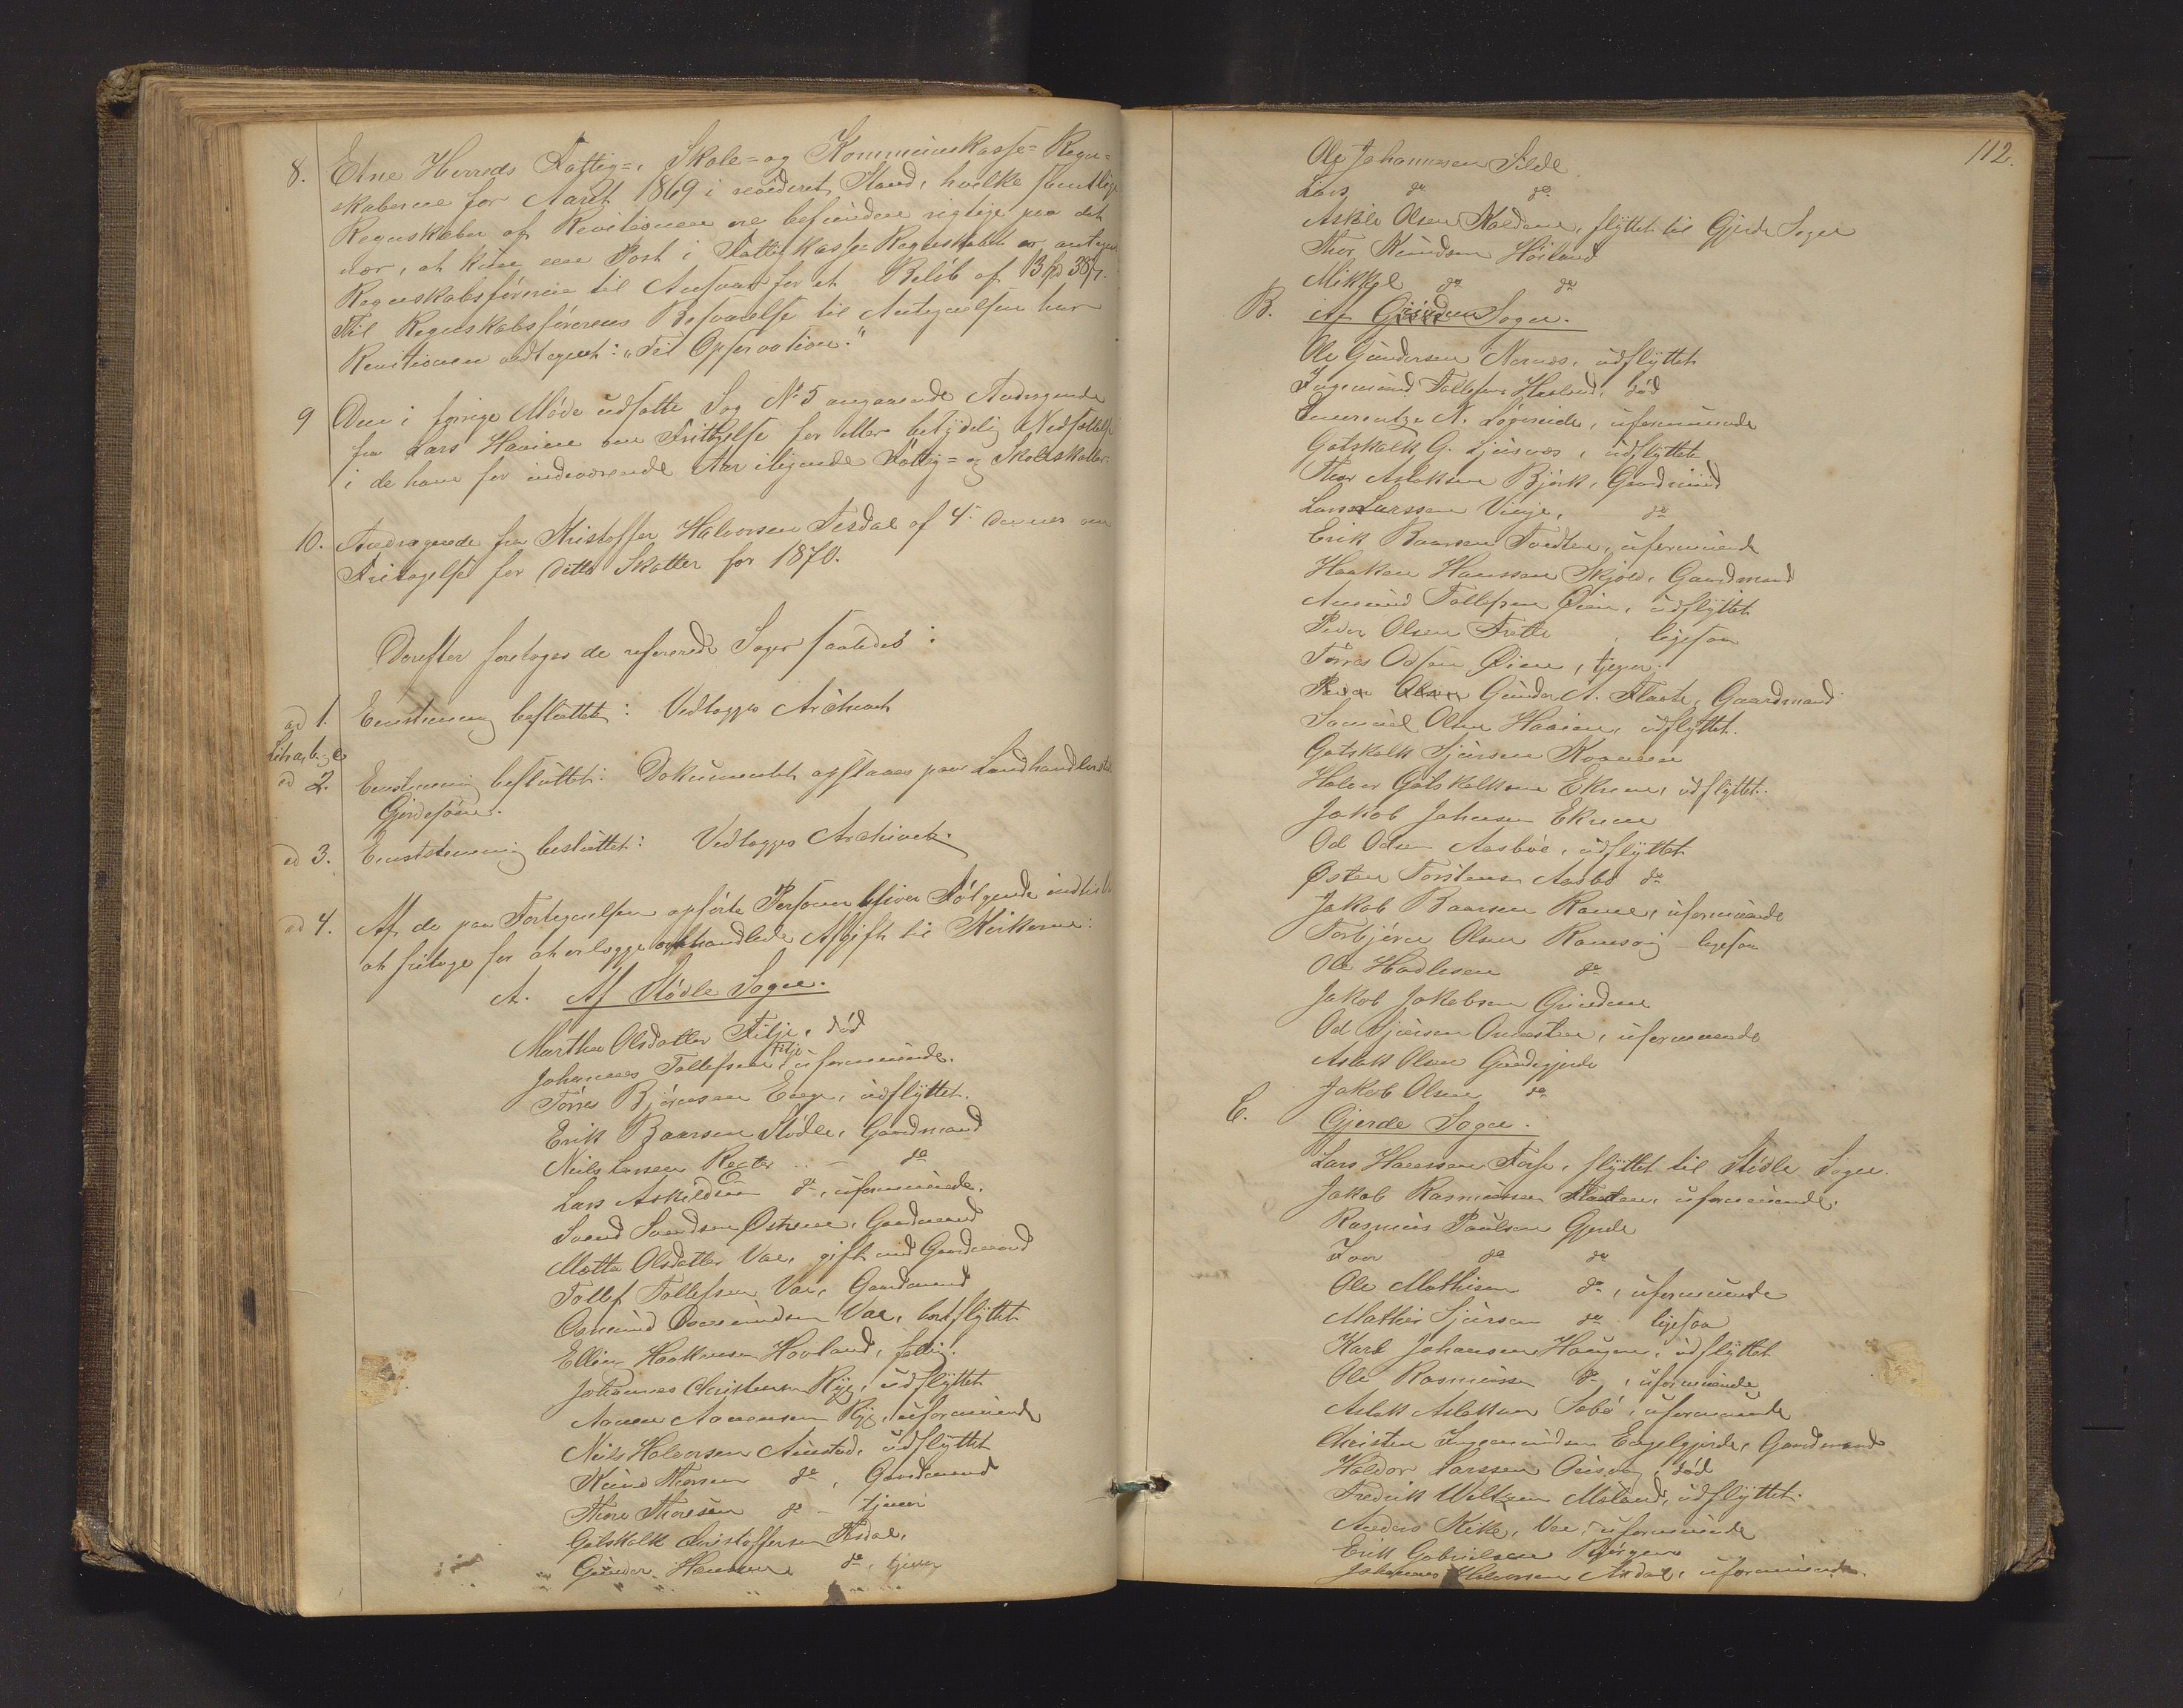 8. Etne Herreds Fattig=, Skole= og Kommunekasse= Regn=
skaberne for Aaret 1869 i revideret Stand, hvilke samtlige
Regnskaber af Revisionen ere befundne rigtige paa det
nær, at kun een Post i Fattigkasse Regnskabet er antegnet
Regnskabsføreren til Ansvar for et Beløb af 13 ſpd 38 ſ.
Til Regnskabsførerens Besvarelse til Antegnelsen har
Revisionen vedtegnet: "Til Observation."
9 Den i forrige Møde udsatte Sag No 5 angaaende Andragende
fra Lars Haaine om Fritagelse for eller betydelig Nedsættelse
i de ham for indeværende Aar ilignede Fattig= og Skoleskatter.
10. Andragende fra Kristoffer Halvorsen Tesdal af 4. dennes om
Fritagelse for ditto Skatter for 1870.
Derefter foretoges de refererede Sager saaledes:
ad 1. Enstemmig besluttet: Vedlægges Archivet
Litra a, b og c
ad 2. Enstemmig besluttet: Dokumentet opslaaes paa Landhandler
Gjerdesøen.
ad 3. Enstemmig besluttet: Vedlægges Archivet.
ad 4. Af de paa Fortegnelsen opførte Personer bliver Følgende
at fritage for at erlægge omhandlede Afgift til Kirkerne:
A. Af Stødle Sogn.
Martha Olsdatter Filje, død
Johannes Tollefsen Filje uformuende.
Tørres Bjørnsen Enge, udflyttet.
Erik Baarsen Stødle, Gaardmand
Neils Larsen do
Lars Askildsen do, uformuende.
Svend Svendsen Østreim, Gaardmand
Metta Olsdatter Vae, gift med Gaardmand
Tollef Tollefsen Vae, Gaardmand
Osmund Osmundsen Vae, bortflyttet
Elling Haakensen Hovland, fattig.
Johannes Christensen Ryg, udflyttet
Aamun Aamunsen Ryg, uformuende
Neils Halvorsen Austad, udflyttet
Knud Thorsen do, Gaardmand
Thore Thoresen do - tjener
Gotskalk Christoffersen Tesdal,
Gunder Hansen do, tjener
112.
Ole Johannesen Silde
Lars do do
Askild Olsen Kaldheim, flyttet til Gjerde Sogn
Thor Knudsen Høiland
Mikkel do do
B. Af Grindem Sogn.
Ole Gundersen Nernæs, udflyttet
Ingemund Tollefsen Hesland, død
N. Løgereide, uformuende
Gotskalk G. Ljusnæs, udflyttet
Thor Aslaksen Bjørk, Gaardmand
Lars Larssen Vinje, do
Erik Baarsen Tvedten, uformuende
Haaken Hanssen Skjold, Gaardmand
Amund Tollefsen Øien, udflyttet
Peder Olsen Frette, ligesaa
Tørres Odsen Øien, tjener.
Peder Olsen Gunder A. Flaate, Gaardmand
Samuel Olsen Haaien, udflyttet.
Gotskalk Sjursen Kvamen
Halvor Gotskalksen Ekrene, udflyttet.
Jakob Johnsen Ekrene
Od Odsen Aasbøe, udflyttet
Østen Torstensen Aasbø do
Jakob Baarsen Rame, uformuende
Torbjørn Olsen Ramsvig - ligesaa
Ole Hadlesen do
Jakob Jakobsen Grindem
Od Sjursen Onæsten, uformuende
Aslak Olsen Grindegjerde
Jakob Olsen do
C. Gjerde Sogn.
Lars Hanssen Fosse, flyttet til Stødle Sogn.
Jakob Rasmussen Flaaten, uformuende.
Rasmus Paulsen Gjerde
Ivar do do
Ole Mathisen do, uformuende
Mathis Sjursen do ligesaa
Karl Johansen Haugen, udflyttet
Ole Rasmussen do, uformuende
Aslak Aslaksen Sæbø, uformuende
Christen Ingemundsen Engelgjerde, Gaardmand
Haldor Larssen Ousvig, død
Fredrik Weltzen Mæland, udflyttet.
Anders Kike, Vae, uformuende
Erik Gabrielsen Bjørgen
Johannes Halvorsen Årdal, uformuende